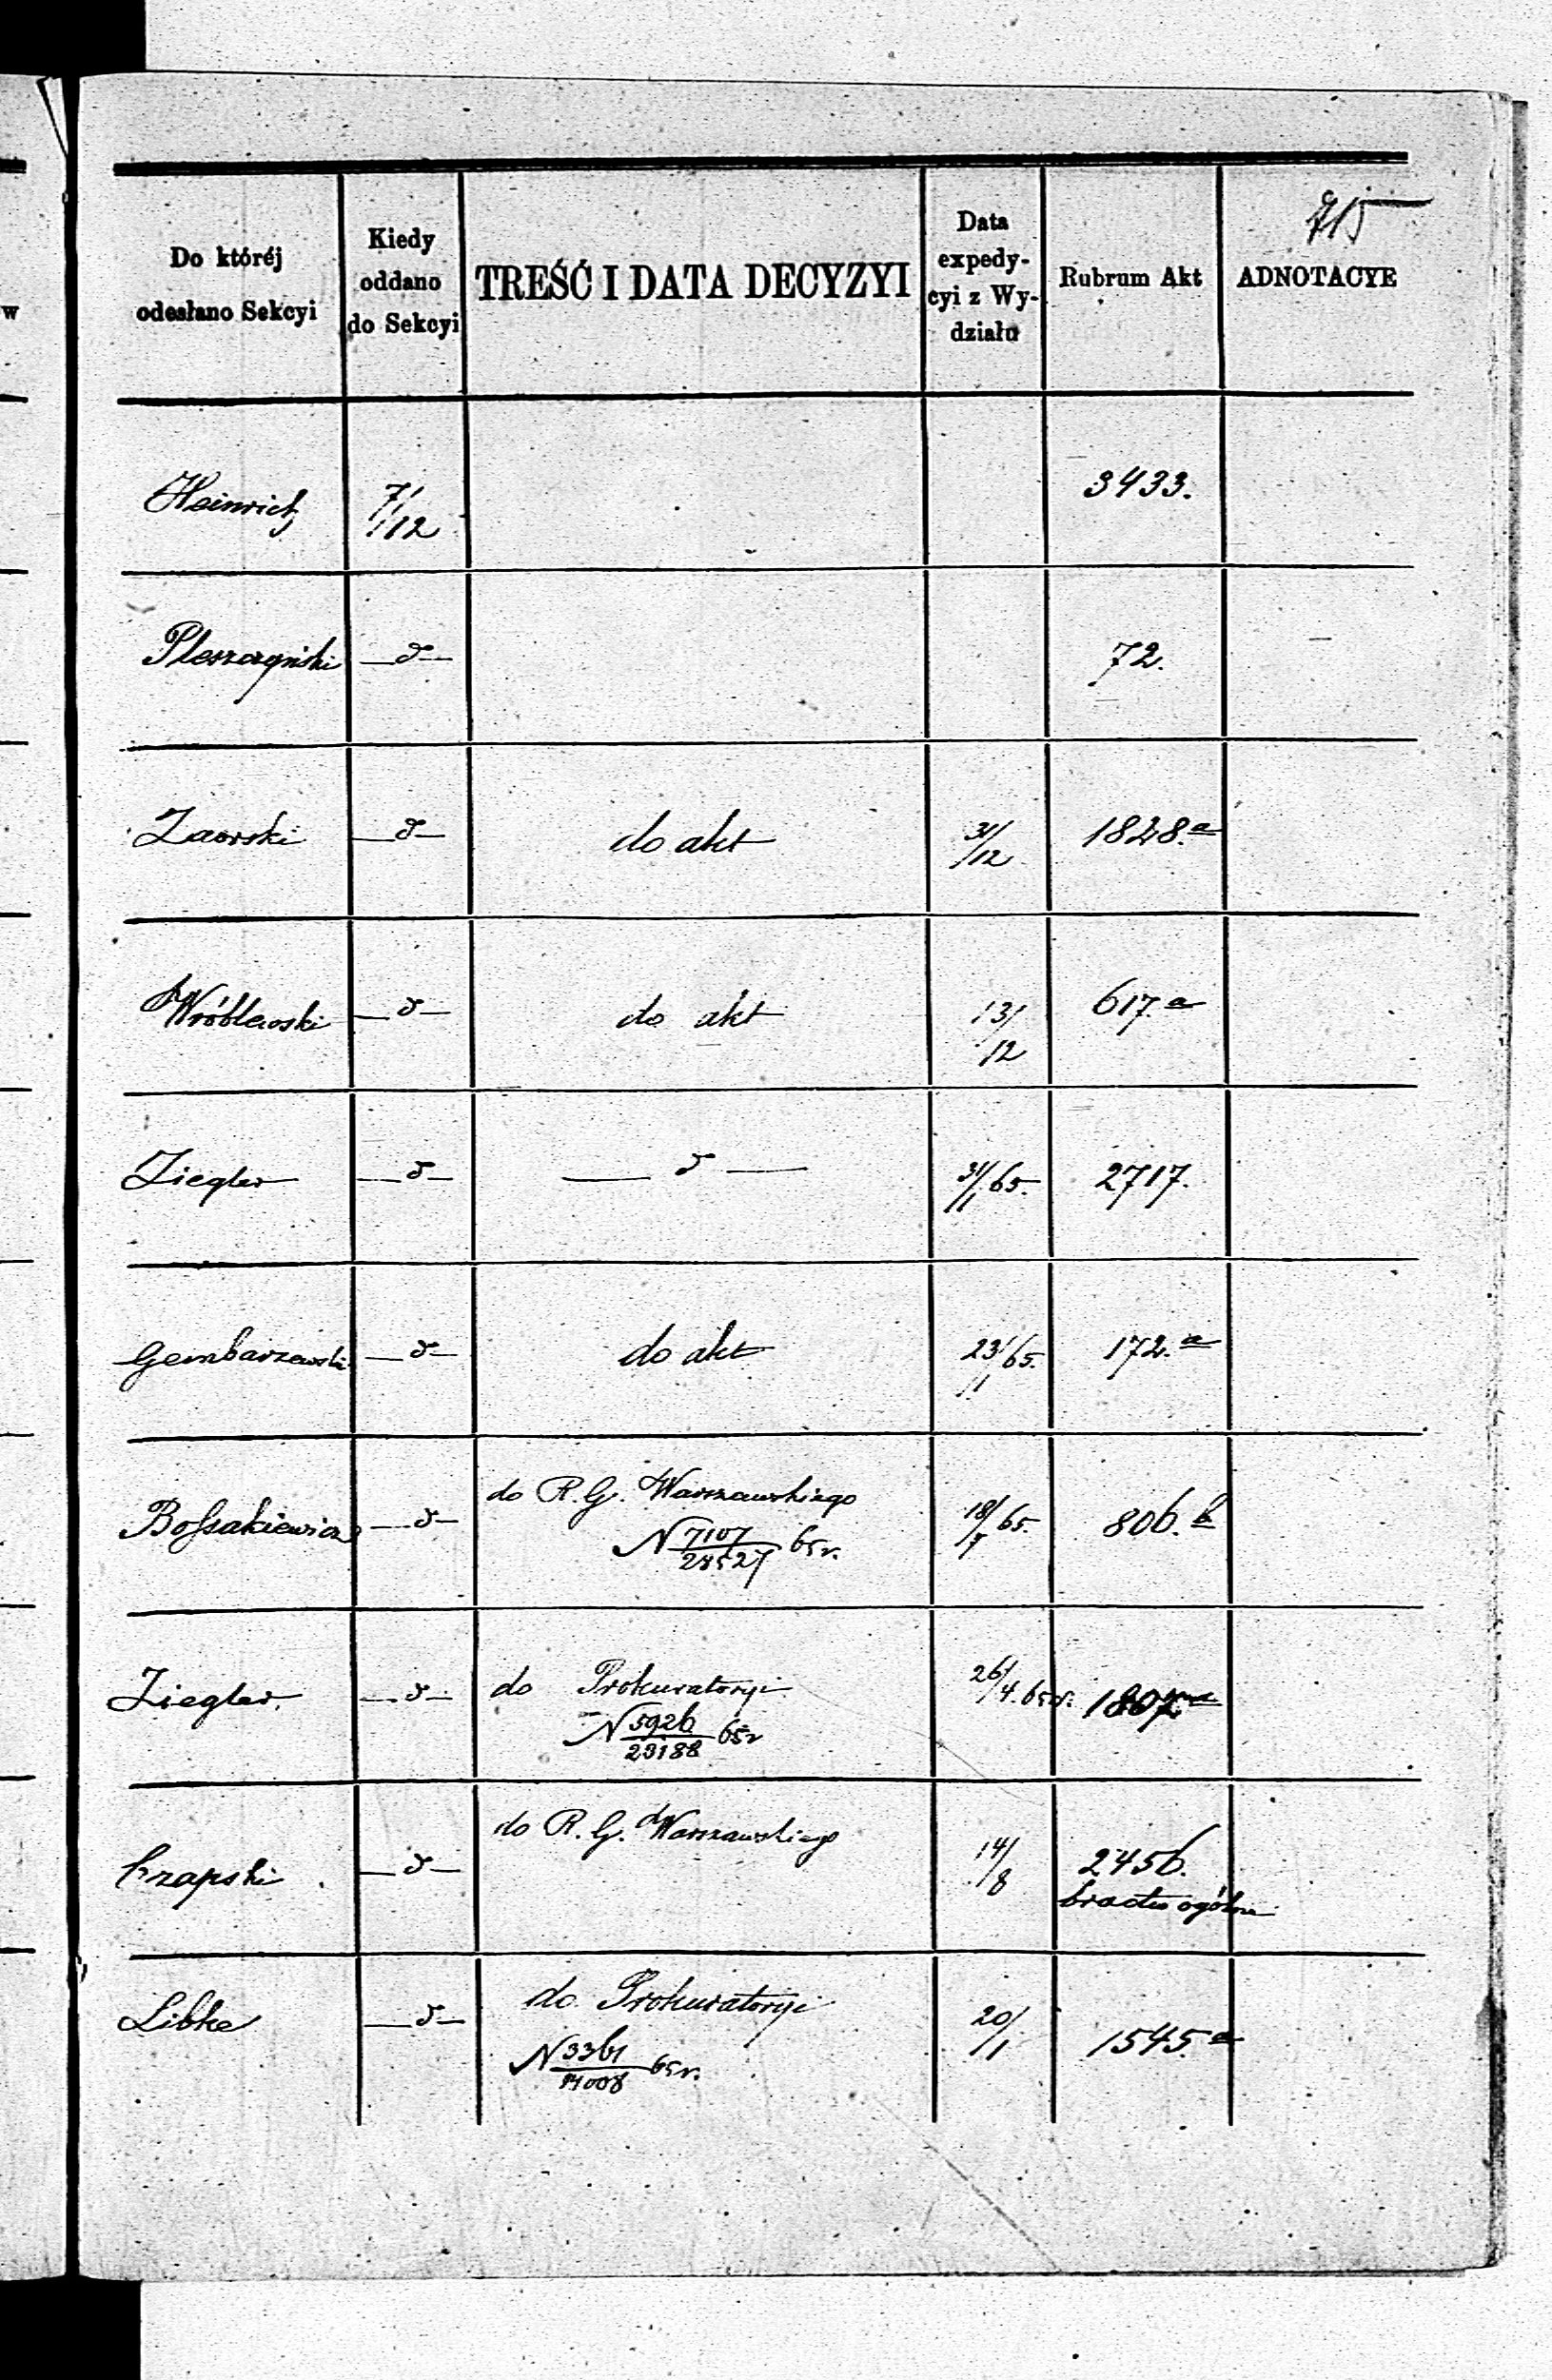 715
Do któréj
odesłano Sekcyi
Kiedy
oddano
do Sekcyi
TREŚĆ I DATA DECYZYI
Data
expedy-
cyi z Wy-
działu
Rubrum Akt
ADNOTACYE
w
Heinrich 7/12 3433.
Pleszczyński —d— 72.
Zaorski —d— do akt 31/12 1828.a
Wróblewski —d— do akt 13/12 617.a
Ziegler —d— — d — 31/1 65. 2717.
Gembarzewski —d— do akt 23/1 65. 172.a
Bossakiewicz —d— do R. G. Warszawskiego 18/7 65. 806.b
N 7107/28527 65 r.
Ziegler —d— do Prokuratoryi 26/4 65 r.
N 5926/23188 65 r
Czapski —d— do R. G. Warszawskiego 14/8 2456.
ogólne
Libke —d— do Prokuratoryi 20/1 1545.a
N 3361/14008 65 r.